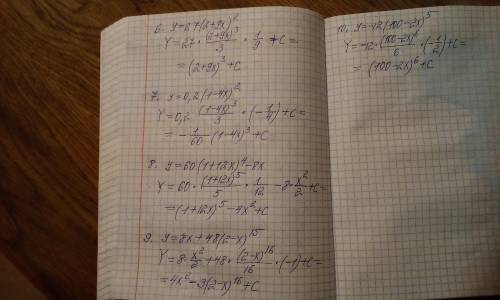 6. y=27(2+9x)²
Y=27·(2+9x)³/3·1/9+C=
=(2+9x)³+C
7. y=0,2(1-4x)²
Y=0,2·(1-4x)³/3·(-1/4)+C=
=-1/60·(1-4x)³+C
8. y=60(1+12x)⁴-8x
Y=60·(1+12x)⁵/5·1/12-8·x²/2+C=
=(1+12x)⁵-4x²+C
9. y=8x+48(2-x)¹⁵
Y=8·x²/2+48·(2-x)¹⁶/16·(-1)+C=
=4x²-3(2-x)¹⁶+C
10. y=-12(100-2x)⁵
Y=-12·(100-2x)⁶/6·(-1/2)+C=
=(100-2x)⁶+C